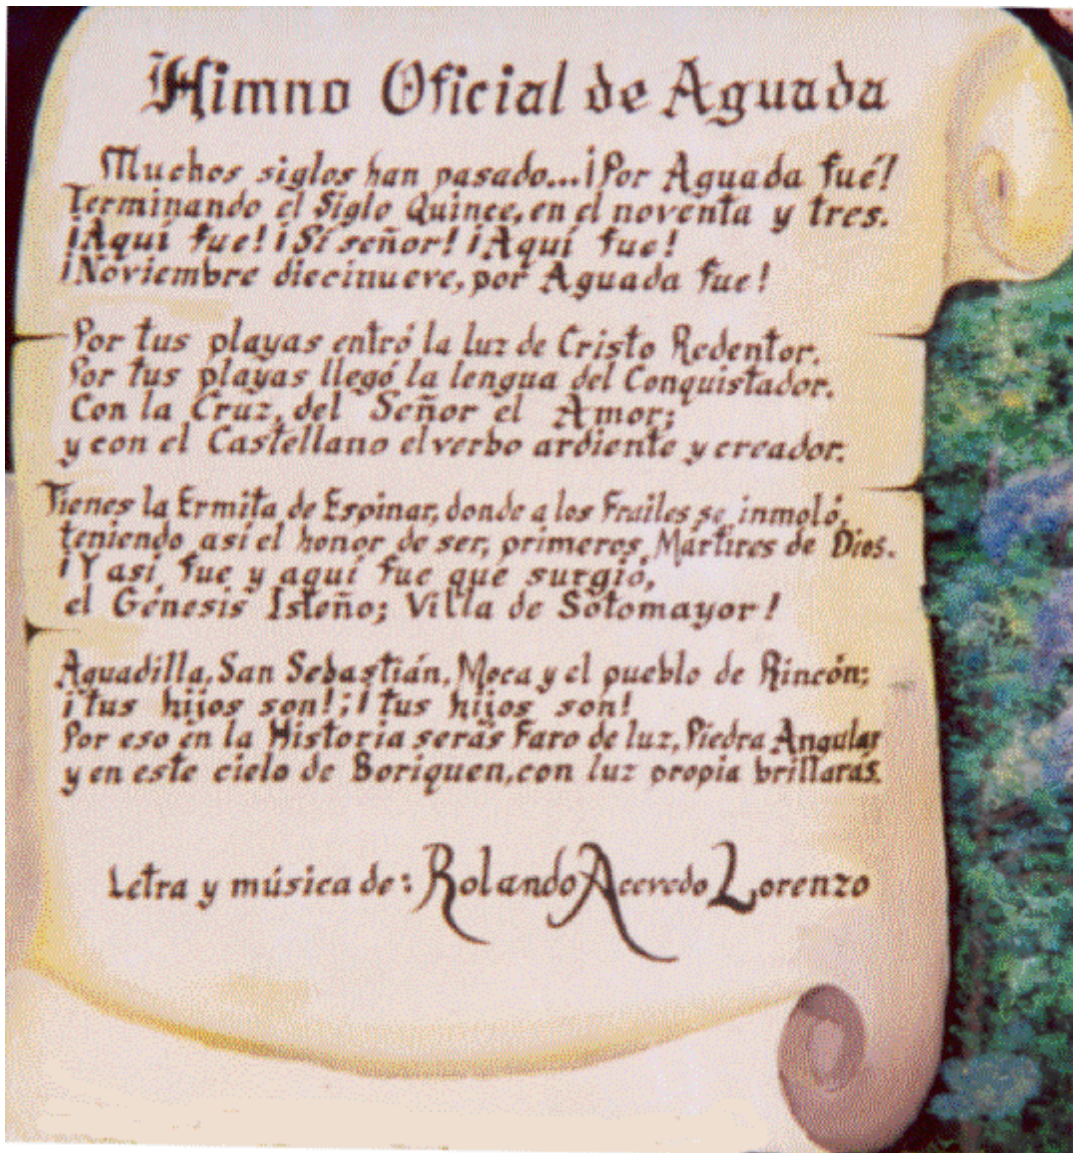 Himno Oficial de Aguada
Muchos siglos han pasado...¡Por Aguada fué!
Terminando el Siglo Quince, en el noventa y tres.
¡Aquí fue! ¡Sí señor! ¡Aquí fue!
¡Noviembre diecinueve, por Aguada fue!
Por tus playas entró la luz de Cristo Redentor.
Por tus playas llegó la lengua del Conquistador.
Con la Cruz, del Señor el Amor;
y con el Castellano el verbo ardiente y creador.
Tienes la Ermita de Espinar, donde a los Frailes se inmoló,
teniendo así el honor de ser, primeros, Mártires de Dios.
¡Y así, fue y aquí fue que surgió,
el Génesis Isteño; Villa de Sotomayor!
Aguadilla, San Sebastián, Moca y el pueblo de Rincón;
¡tus hijos son!; ¡tus hijos son!
Por eso en la Historia serás Faro de luz, Piedra Angular
y en este cielo de Boriquen, con luz propia brillarás.
Letra y música de: Rolando Acevedo Lorenzo